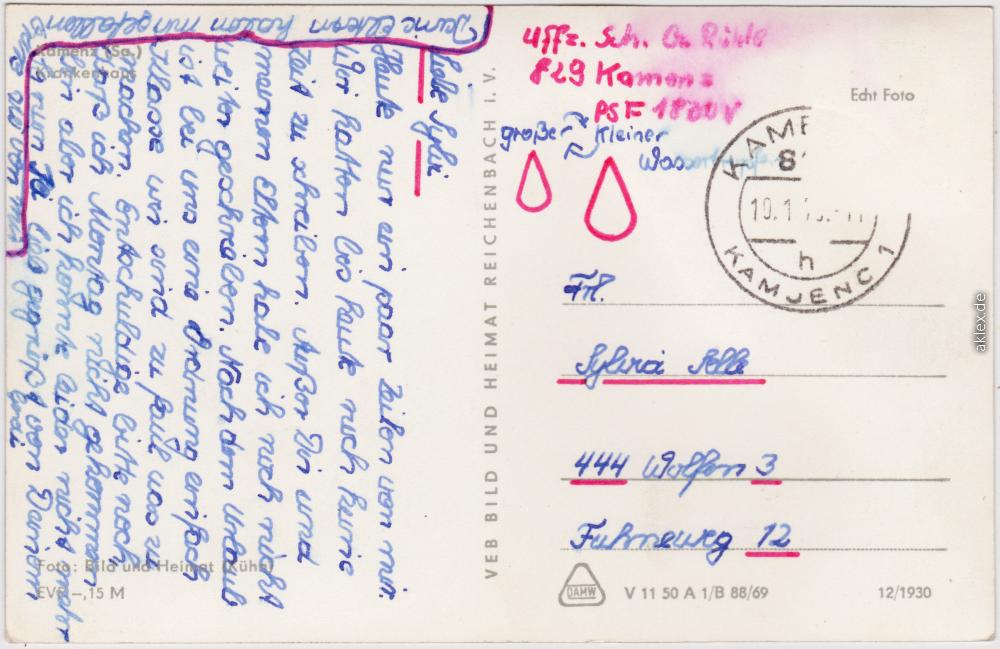 Uffz. Sch. G. Rühle
829 Kamenz
PSF 1800 V
großer Kleiner
Echt Foto
KAMENZ 1
8
h
KAMJENC 1
Frl.
Sylvia
444 Wolfen 3
Fuhneweg 12
DAMW
V 11 50 A 1/B 88/69
12/1930
VEB BILD UND HEIMAT REICHENBACH I. V.
Kamenz (Sa.)
Krankenhaus
Foto: Bild und Heimat (Kühn)
EVP –,15 M
Liebe Sylvi
Heute nur ein paar Zeilen von mir
Wir hatten bis heute noch keine
Zeit zu schreiben. Außer Dir und
meinen Eltern habe ich noch nicht
weiter geschrieben. Nach dem Urlaub
ist bei uns eine Ordnung einfach
Klasse wir sind zu faul was zu
machen. Entschuldige bitte noch
daß ich Montag nicht gekommen
bin aber ich konnte leider nicht mehr
Nun sei lieb gegrüßt von Deinem
Deine Eltern haben mir gefallen
aklex.de